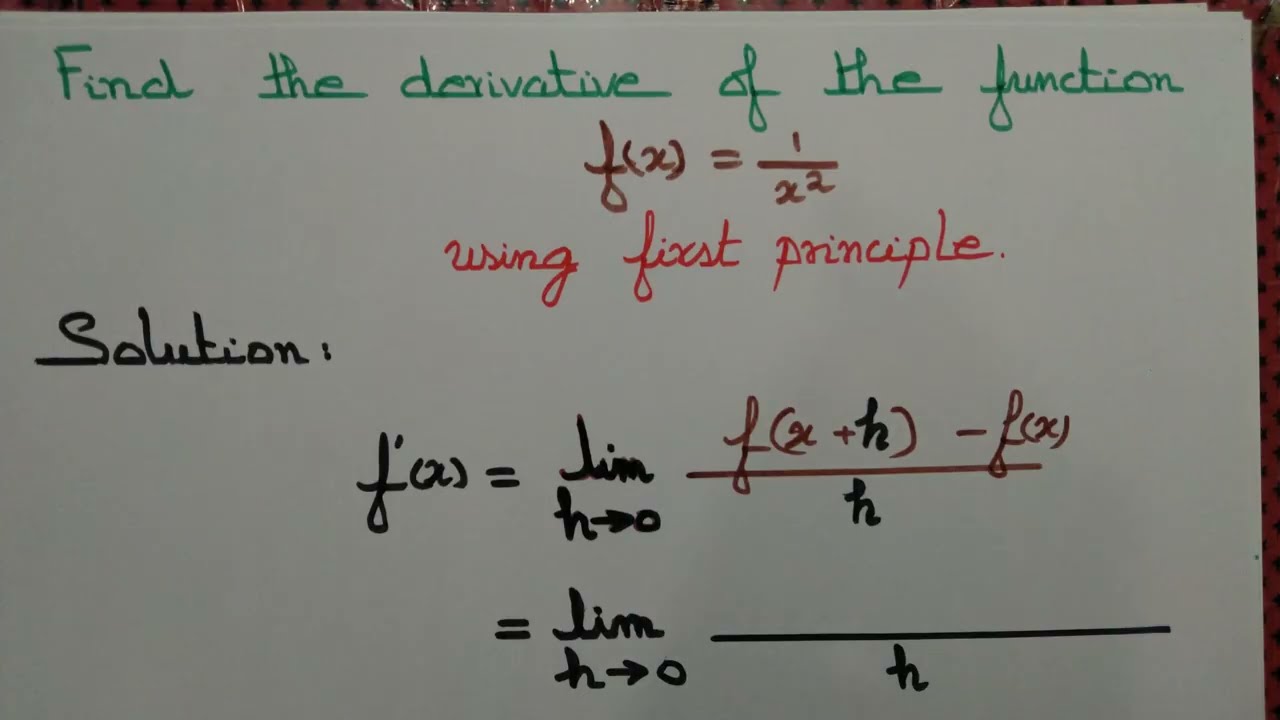 Find the derivative of the function
f(x) = 1/x²
using first principle.
Solution:
f'(x) = lim h→0 (f(x+h) - f(x))/h
= lim h→0 ―/h